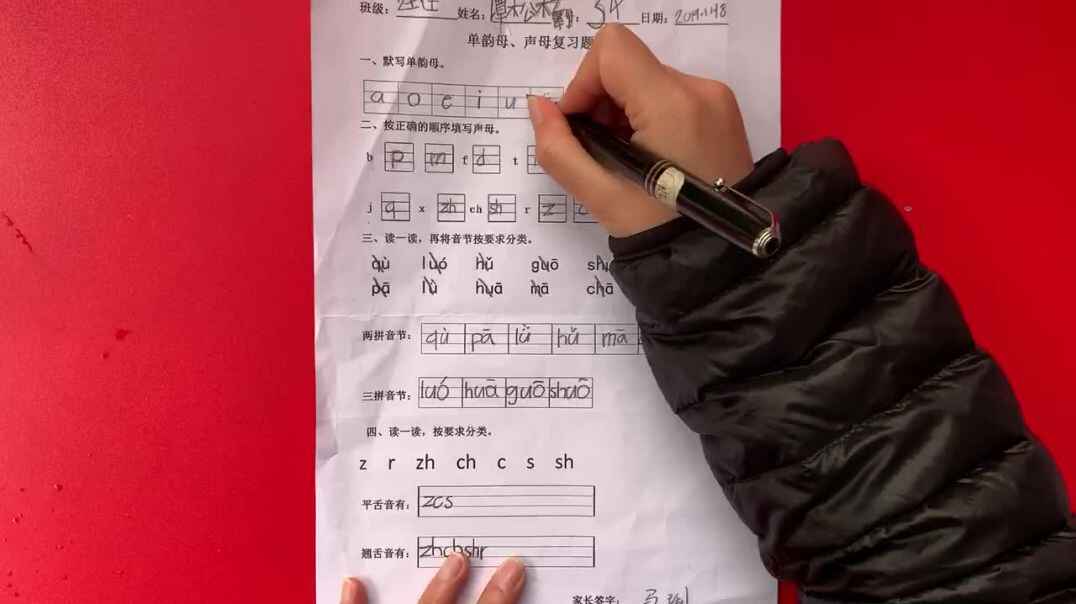 班级： 姓名： 日期：
单韵母、声母复习题
一、默写单韵母。
a o e i u
二、按正确的顺序填写声母。
b p m f d t
j q x zh ch sh r z c
三、读一读，再将音节按要求分类。
qù luó hǔ guō
pā lǜ huā mā chā
两拼音节： qù pā lǜ hǔ mā
三拼音节： luó huā guō shuō
四、读一读，按要求分类。
z r zh ch c s sh
平舌音有： zcs
翘舌音有： zhchshr
家长签字：